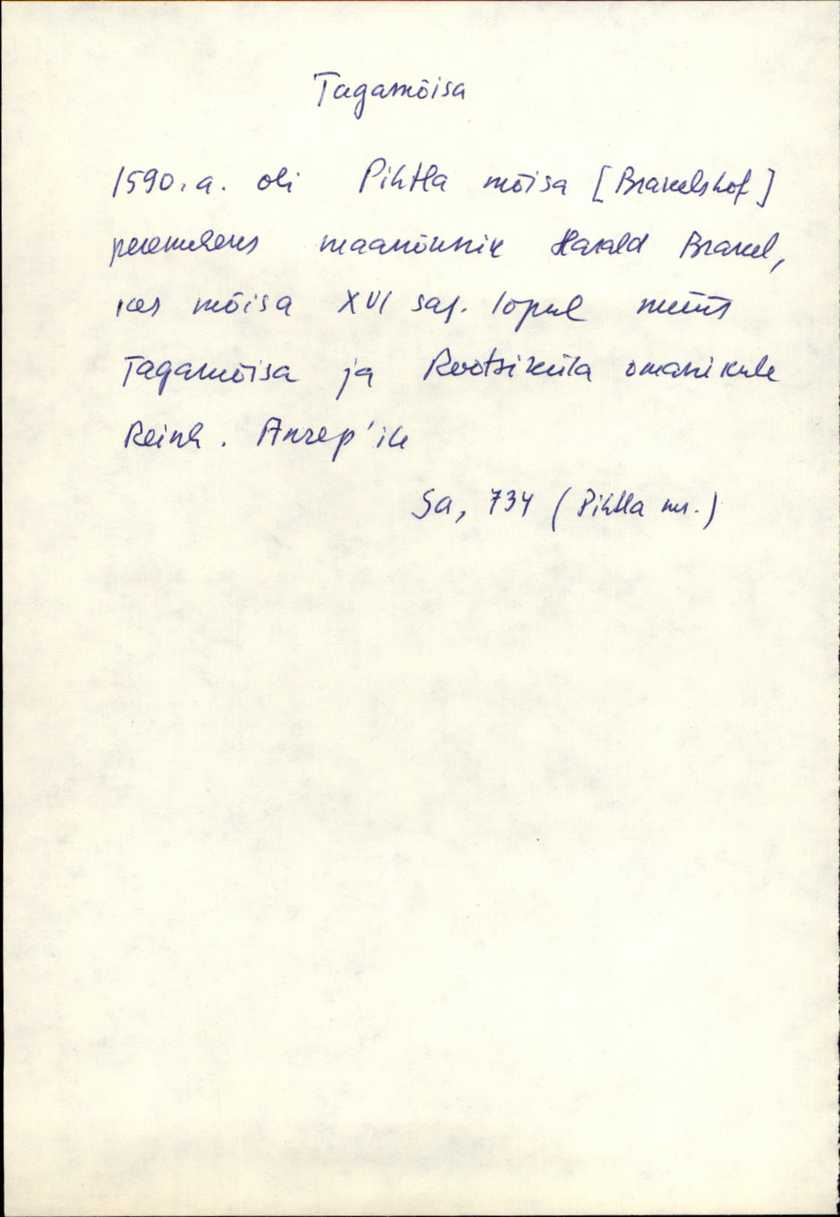 Tagamõisa
1590.a. oli Pihtla mõisa [Brakelshof]
peremeheks maanõunik Harald Brakel,
kes mõisa XVI saj. lopul müüs
Tagamõisa ja Rootsiküla omanikule
Reinh. Anrep'ile
Sa, 734 (Pihtla mr.)